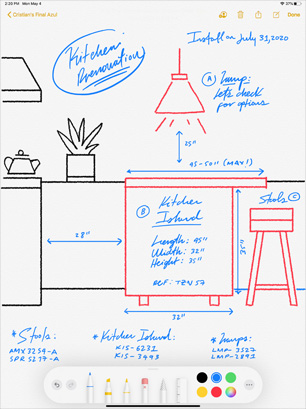 2:20 PM Mon May 4
88%
Cristian's Final Azul
Done
Kitchen
Renovation
Install on July 31, 2020
A Lamp:
Let's check
for options
25"
45-50" (MAX!)
B Kitchen
Island
Length: 45"
Width: 32"
Height: 35"
REF: TZN 57
Stools C
28"
35"
32"
* Stools:
AMX 3259-A
SPR 5217-A
* Kitchen Island:
KIS-6231
KIS-3493
* Lamps:
LMP-3527
LMP-2891